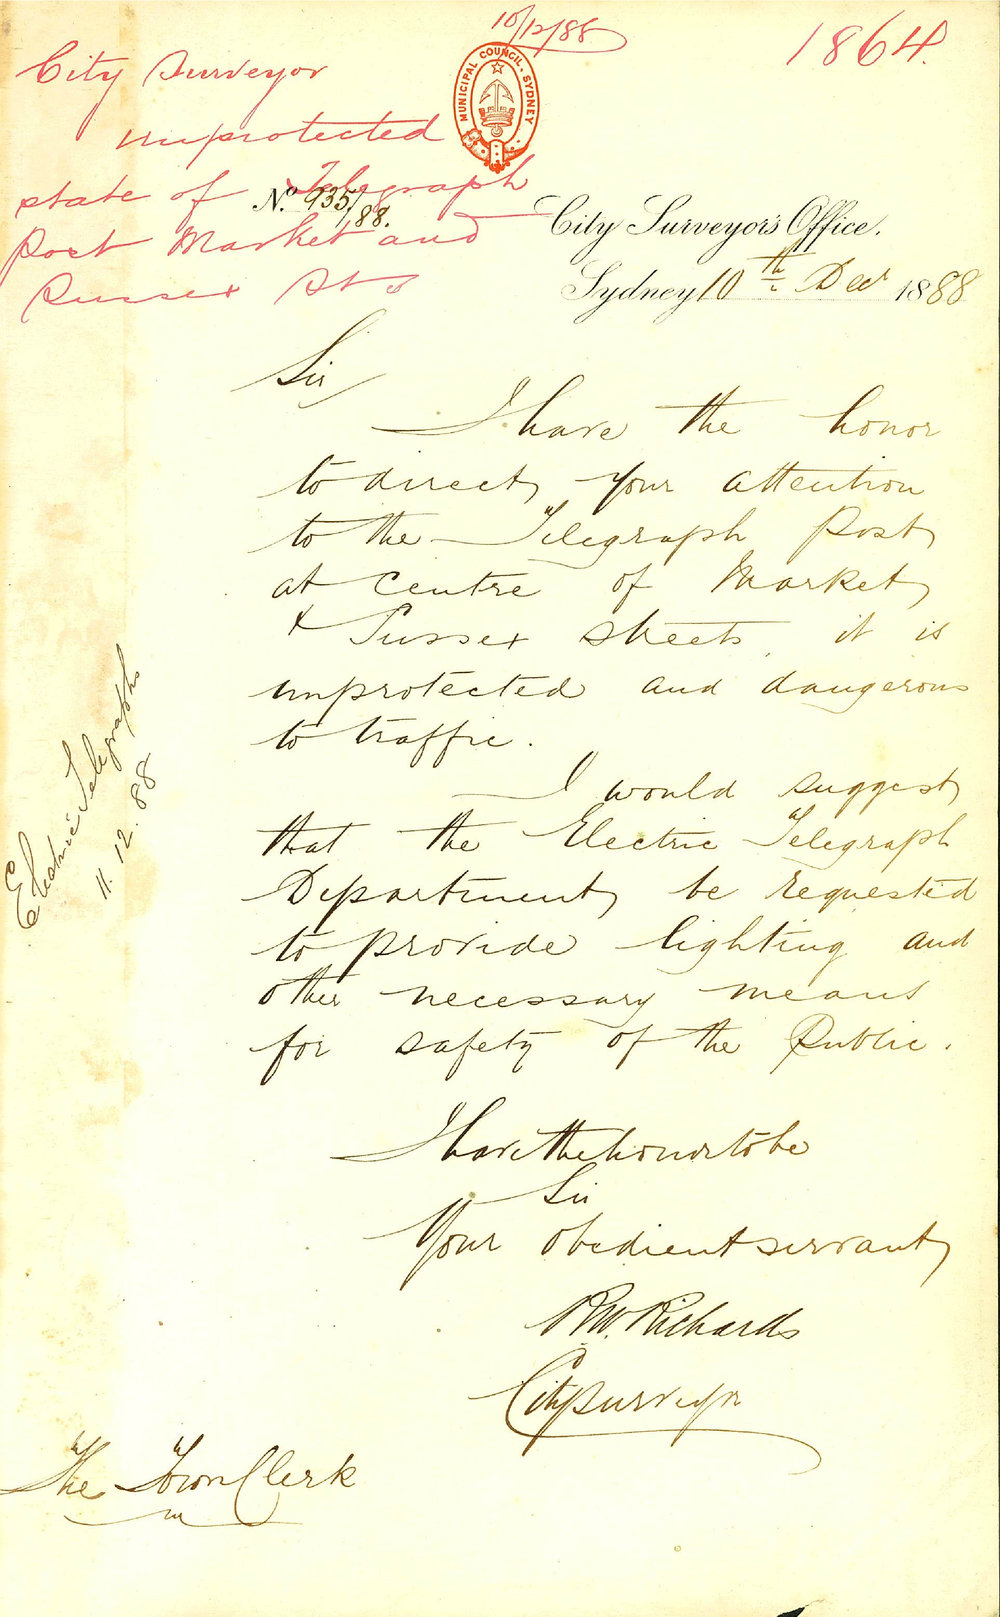 10/12/88
1864.
City Surveyor
unprotected
state of Telegraph
Post Market and
Sussex Sts
MUNICIPAL COUNCIL, SYDNEY
No. 935/88.
City Surveyor's Office.
Sydney 10th Decr 1888
Sir
I have the honor
to direct your attention
to the Telegraph Post
at centre of Market
& Sussex streets, it is
unprotected and dangerous
to traffic.
I would suggest
that the Electric Telegraph
Department be requested
to provide lighting and
other necessary means
for safety of the Public.
I have the honor to be
Sir
Your obedient servant
R.W. Richards
City Surveyor
The Town Clerk
Electric Telegraphs
11.12.88